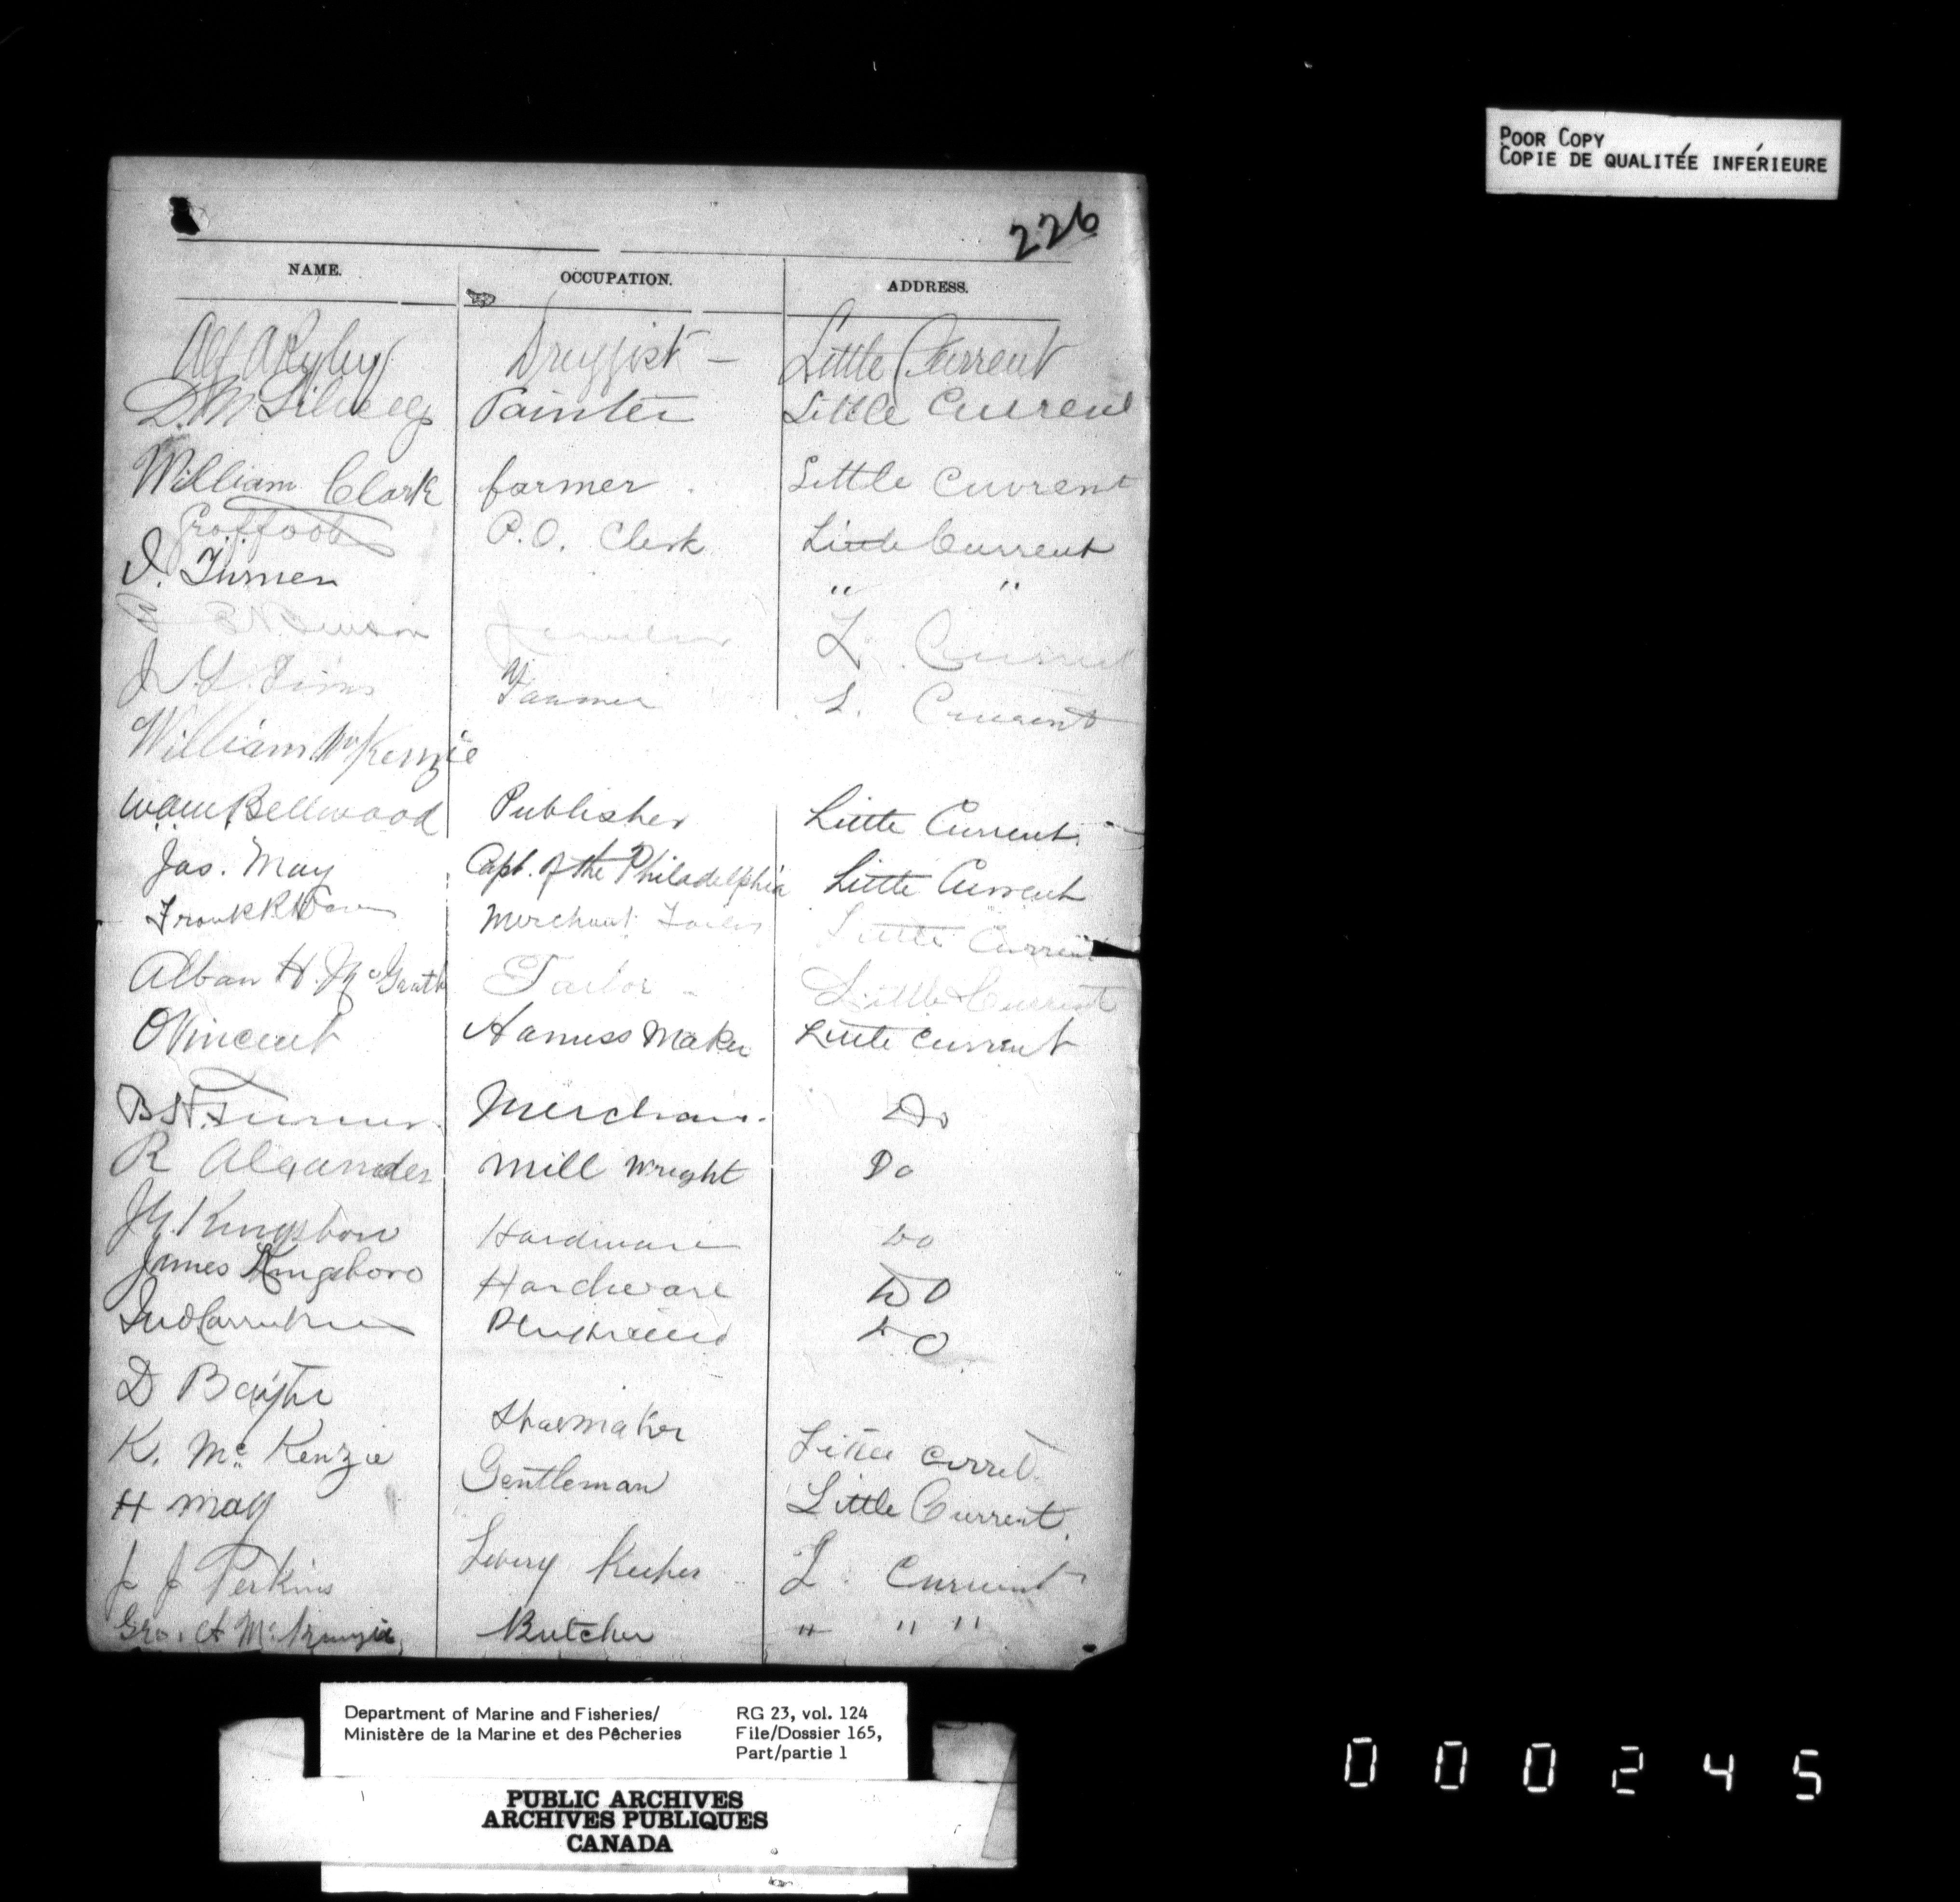 POOR COPY
COPIE DE QUALITÉE INFÉRIEURE
226
NAME. OCCUPATION. ADDRESS.
Druggist - Little Current
D. M Painter Little Current
William Clark farmer. Little Current
Proffoot P.O. Clerk Little Current
I. Turner " "
Jeweler L. Current
J. Y. Sims Farmer L. Current
William McKenzie
Wam Bellwood Publisher Little Current.
Jas. May Capt. of the Philadelphia Little Current
Frank R Merchant Tailor Little Current
Alban H. McGrath Tailor - Little Current
O Vincent Harness Maker Little Current
B. H. Turner. Merchan. Do
R Alexander Mill Wright Do
J. Y. Kingsboro Hardware Do
James Kingsboro Hardware DO
Jno Carruthers DO
D Baxter
Shoemaker
K. Mc Kenzie Little Curret.
Gentleman
H May Little Current.
J J Perkins Livery Keeper L. Current
Geo. A McKenzie, Butcher " " "
Department of Marine and Fisheries/ RG 23, vol. 124
Ministère de la Marine et des Pêcheries File/Dossier 165,
Part/partie 1
PUBLIC ARCHIVES
ARCHIVES PUBLIQUES
CANADA
000245